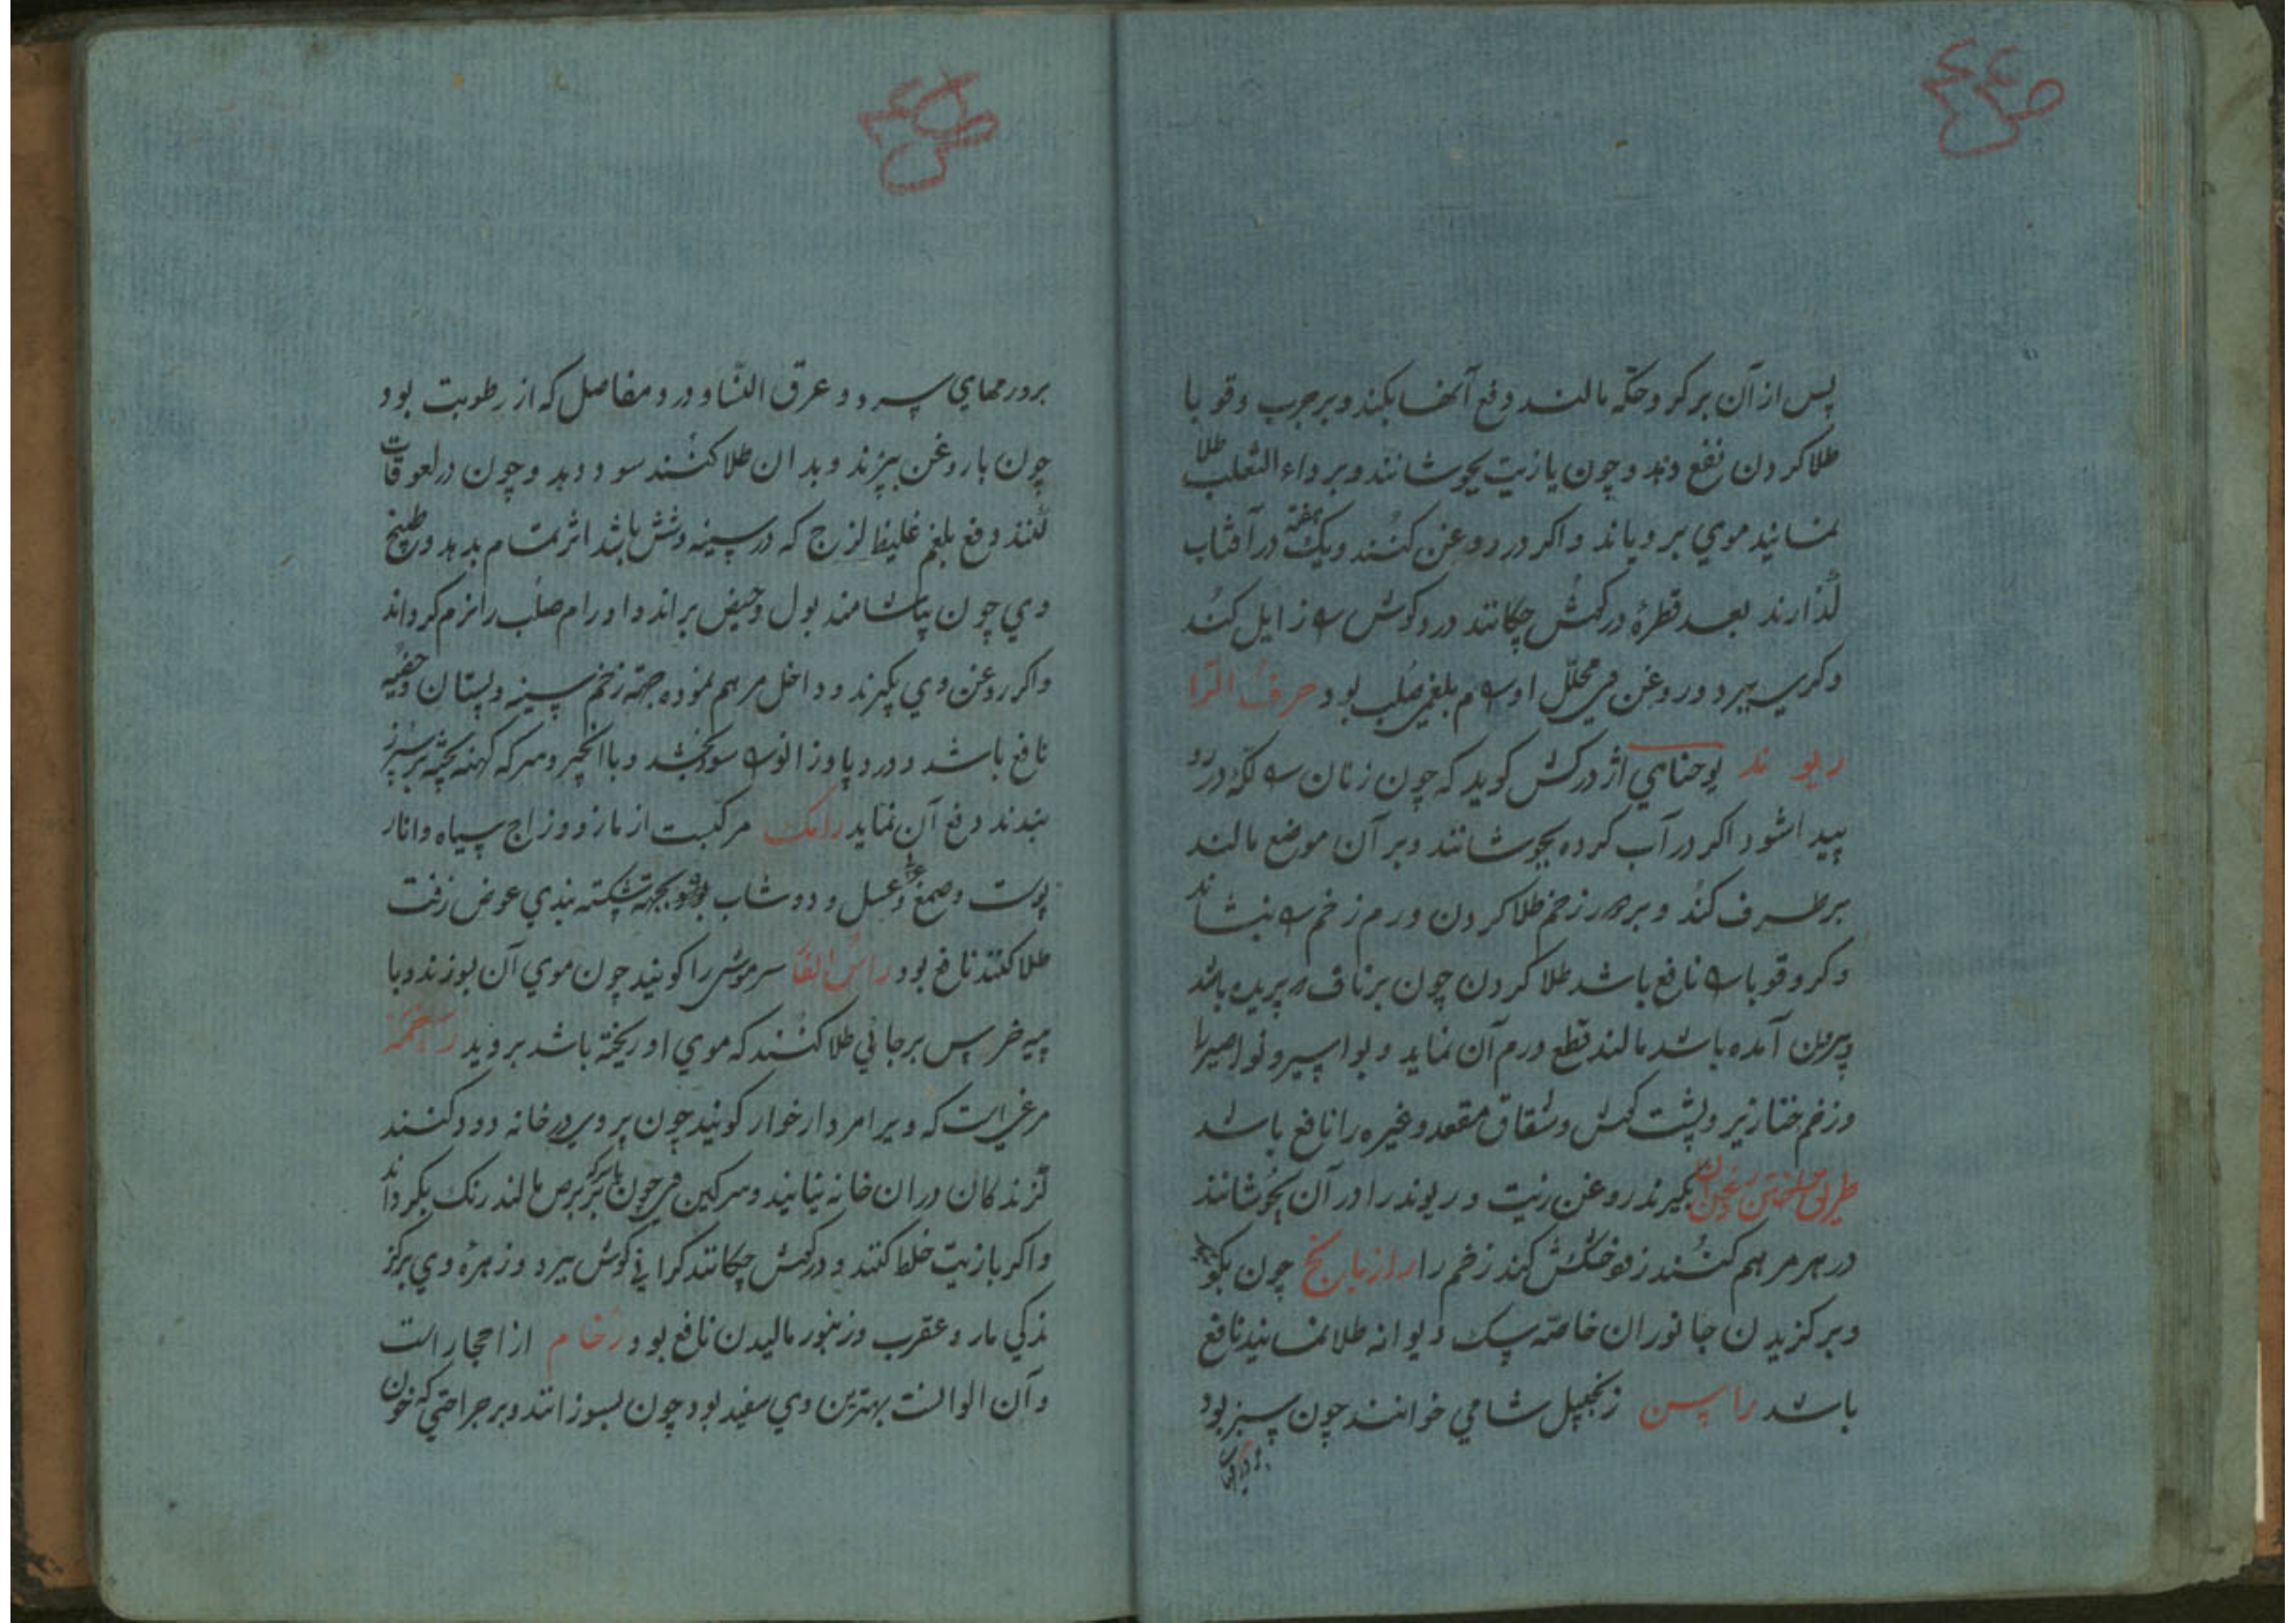 پس از آن بر کر و حکّه مالند دفع آنها بکند و بر جرب و قوبا
طلا کردن نفع دهد و چون با زیت بجوشانند و بر داء الثعلب طلا
نمایند موی برویاند و اکر در روغن کنند و یک هفته در آفتاب
گذارند بعد قطرهٔ در کوش چکانند درد کوش را زایل کند
و کری ببرد و روغن وی محلّل اورام بلغمی صلب بود حرف الرّا
ریوند یوحنا کوید که چون زنان را لکّه در رو
پیدا شود اکر در آب کرده بجوشانند و بر آن موضع مالند
برطرف کند و بر هر زخم طلا کردن ورم زخم را بنشاند
و کر و قوبا را نافع باشد طلا کردن چون بر ناف بریده باشد
بیرون آمده باشد مالند قطع ورم آن نماید و بواسیر و نواصیر را
و زخم خنازیر و پشت کوش و شقاق مقعد و غیره را نافع باشد
طریق ساختن روغن آن بکیرند روغن زیت و ریوند را در آن بجوشانند
در هر مرهم کنند زود خشک کند زخم را رازیانج چون بکوبند
و بر کزیدن جانوران خاصّه سک دیوانه طلا نمایند نافع
باشد راسن زنجبیل شامی خوانند چون سبز بود
بر ورمهای سرد و عرق النّسا و درد مفاصل که از رطوبت بود
چون با روغن بپزند و بدان طلا کنند سود دهد و چون در لعوقات
کنند دفع بلغم غلیظ لزج که در سینه و شش باشد اثر تمام بدهد و طبیخ
وی چون بیاشامند بول و حیض براند و اورام صلب را نرم کرداند
و اکر روغن وی بکیرند و داخل مرهم نموده جهة زخم سینه و پستان
نافع باشد و درد پا و زانو را سود بخشد و با انجیر و سرکه کهنه پخته بر سپرز
بندند دفع آن نماید رامک مرکبست از مازو و زاج سیاه و انار
پوست و صمغ عربی و عسل و دوشاب بجهة شکسته بندی عوض زفت
طلا کنند نافع بود راس الفار سر موش را کویند چون موی آن بسوزند و با
پیه خرس بر جائی طلا کنند که موی او ریخته باشد بروید رخمة
مرغی است که ویرا مردار خوار کویند چون پر ویرا در خانه دود کنند
کزندکان دران خانه نیایند و سرکین وی چون با سرکه بر برص مالند رنک بکرداند
و اکر با زیت خلط کنند و در کوش چکانند کرانی کوش ببرد و زهرهٔ وی بر کز
ندکی مار و عقرب و زنبور مالیدن نافع بود رخام از احجار است
و آن الوانست بهترین وی سفید بود چون بسوزانند و بر جراحتی که خون